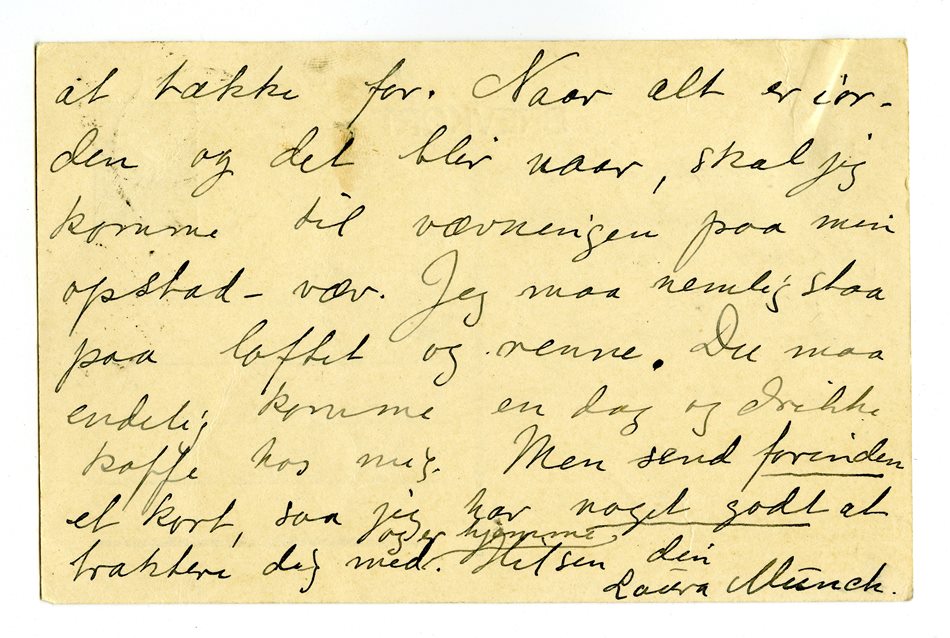 at takke for. Naar alt er i or-
den og det blir naar, skal jig
komme til vævningen paa min
opstad-væv. Jeg maa nemlig staa
paa loftet og renne. Du maa
endelig komme en dag og drikke
kaffe hos mig. Men send forinden
et kort, saa jeg har noget godt at
og er hjemme
traktere dig med. Hilsen din
Laura Munch.